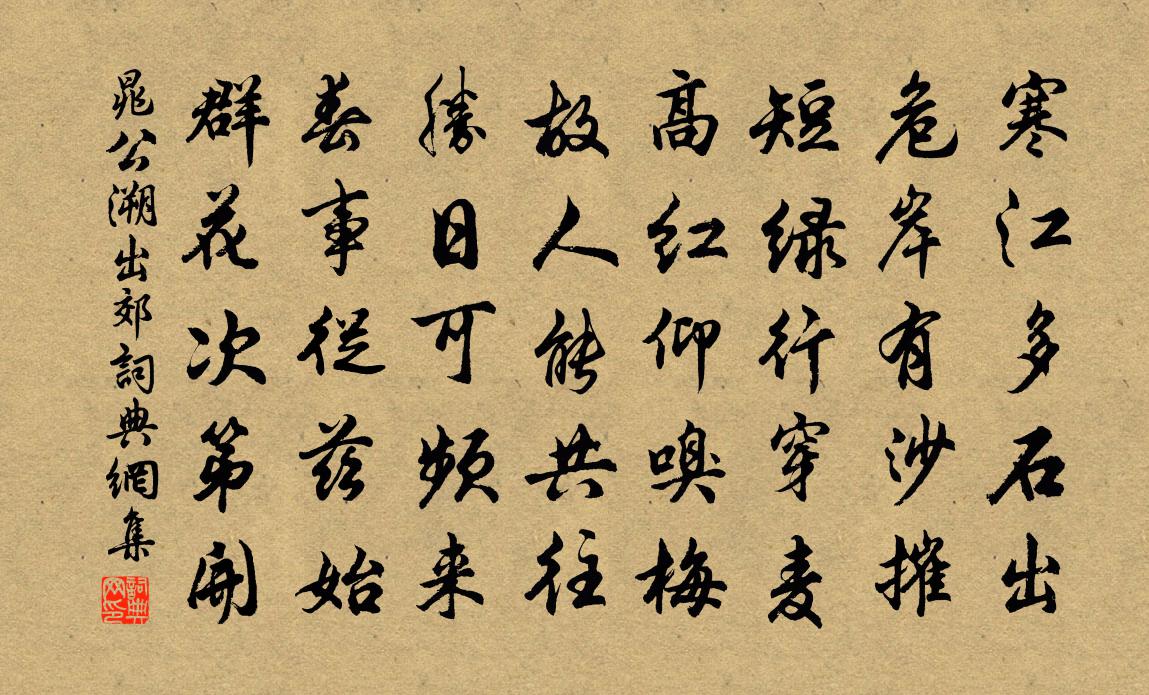 寒江多石出
危岸有沙摧
短绿行穿麦
高红仰嗅梅
故人能共往
勝日可频来
春事従兹始
群花次第開
晁公溯出郊詞典網集
詞典网印